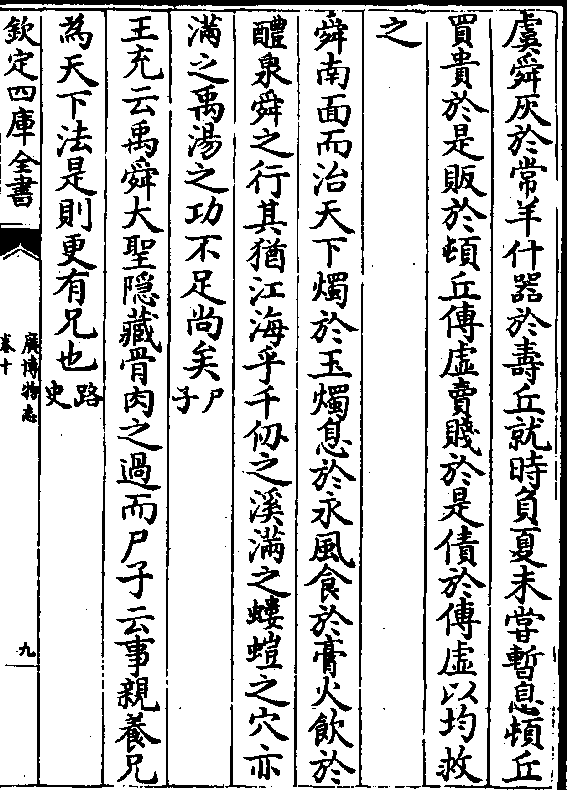 虞舜灰於常羊什器於壽丘就時負夏未嘗暫息頓丘
買貴於是販於頓丘傳虛賣賤於是債於傳虛以均救
之
舜南面而治天下燭於玉燭息於永風食於膏火飲於
醴泉舜之行其猶江海乎千仞之溪滿之螻螘之穴亦
滿之禹湯之功不足尚矣尸子
王充云禹舜大聖隱藏骨肉之過而尸子云事親養兄
為天下法是則更有兄也路史
欽定四庫全書
廣博物志
卷十
九